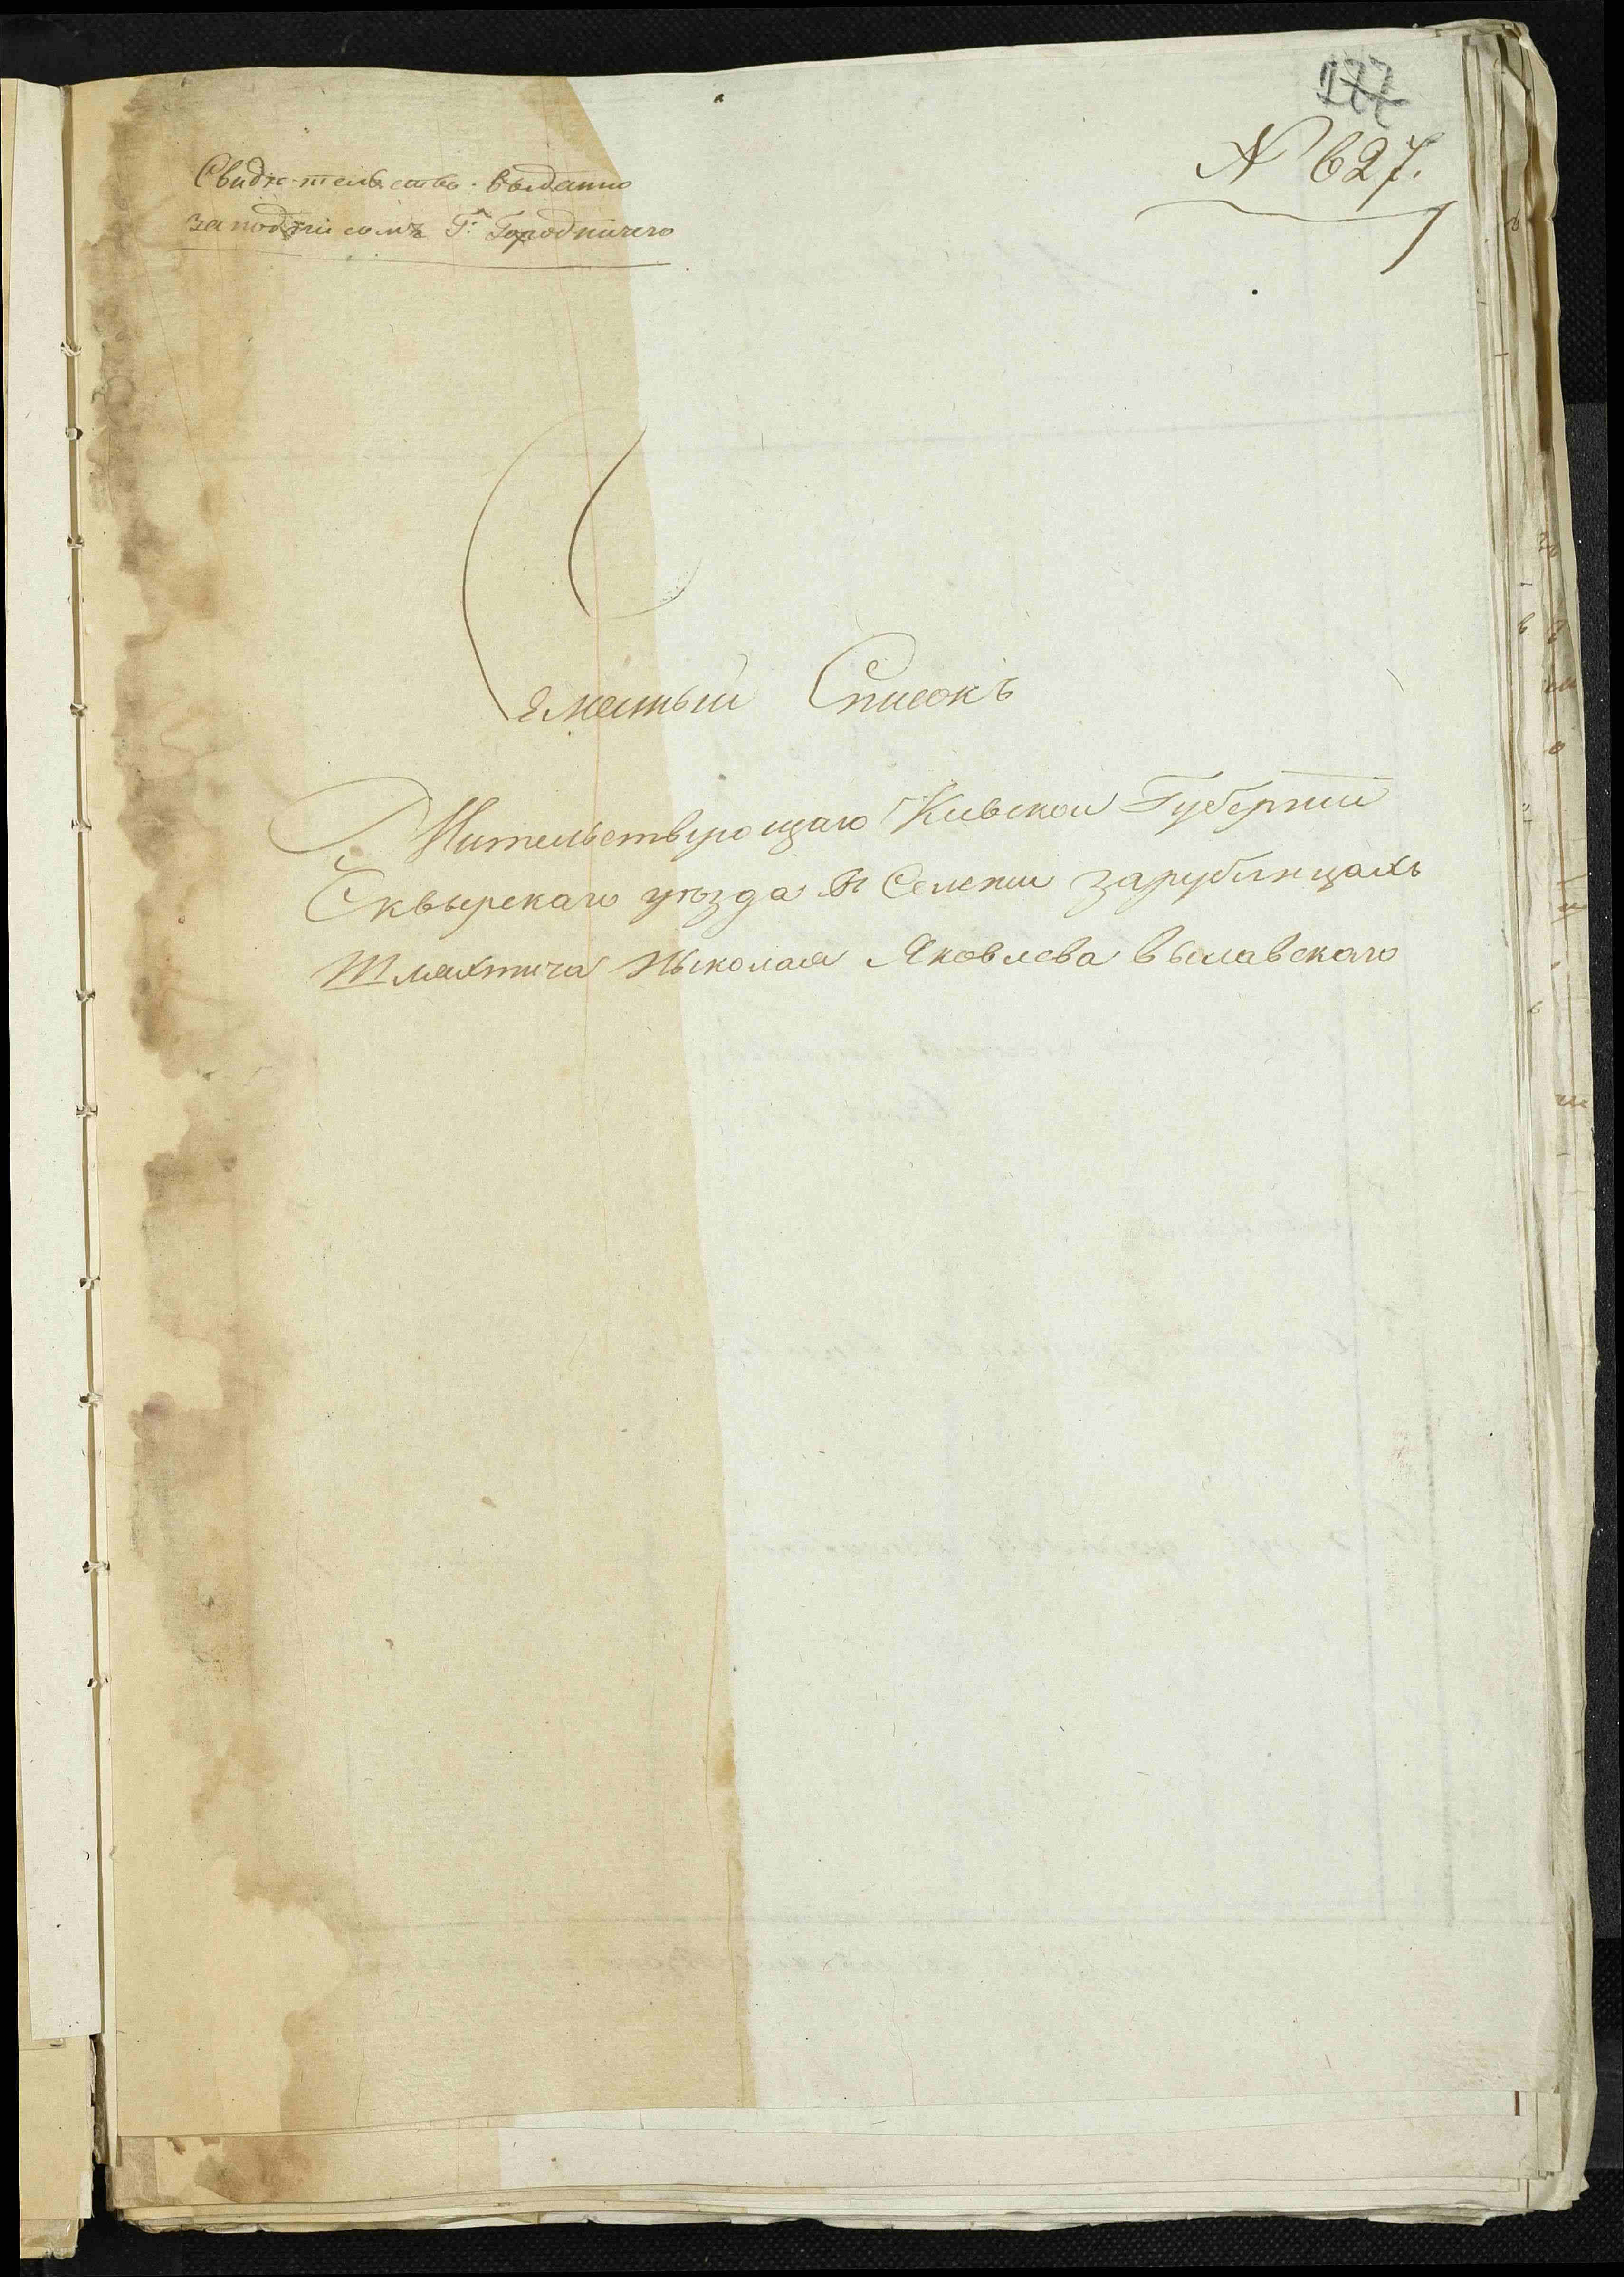 177
№ 627.
Свидѣтельство выданно
заподписомъ Г. Городничего
Семейный Списокъ
Жительствующаго Киевской Губернии
Сквырскаго уѣзда в Селении Зарубинцахъ
Шляхтича Николая Яковлева Вылавскаго